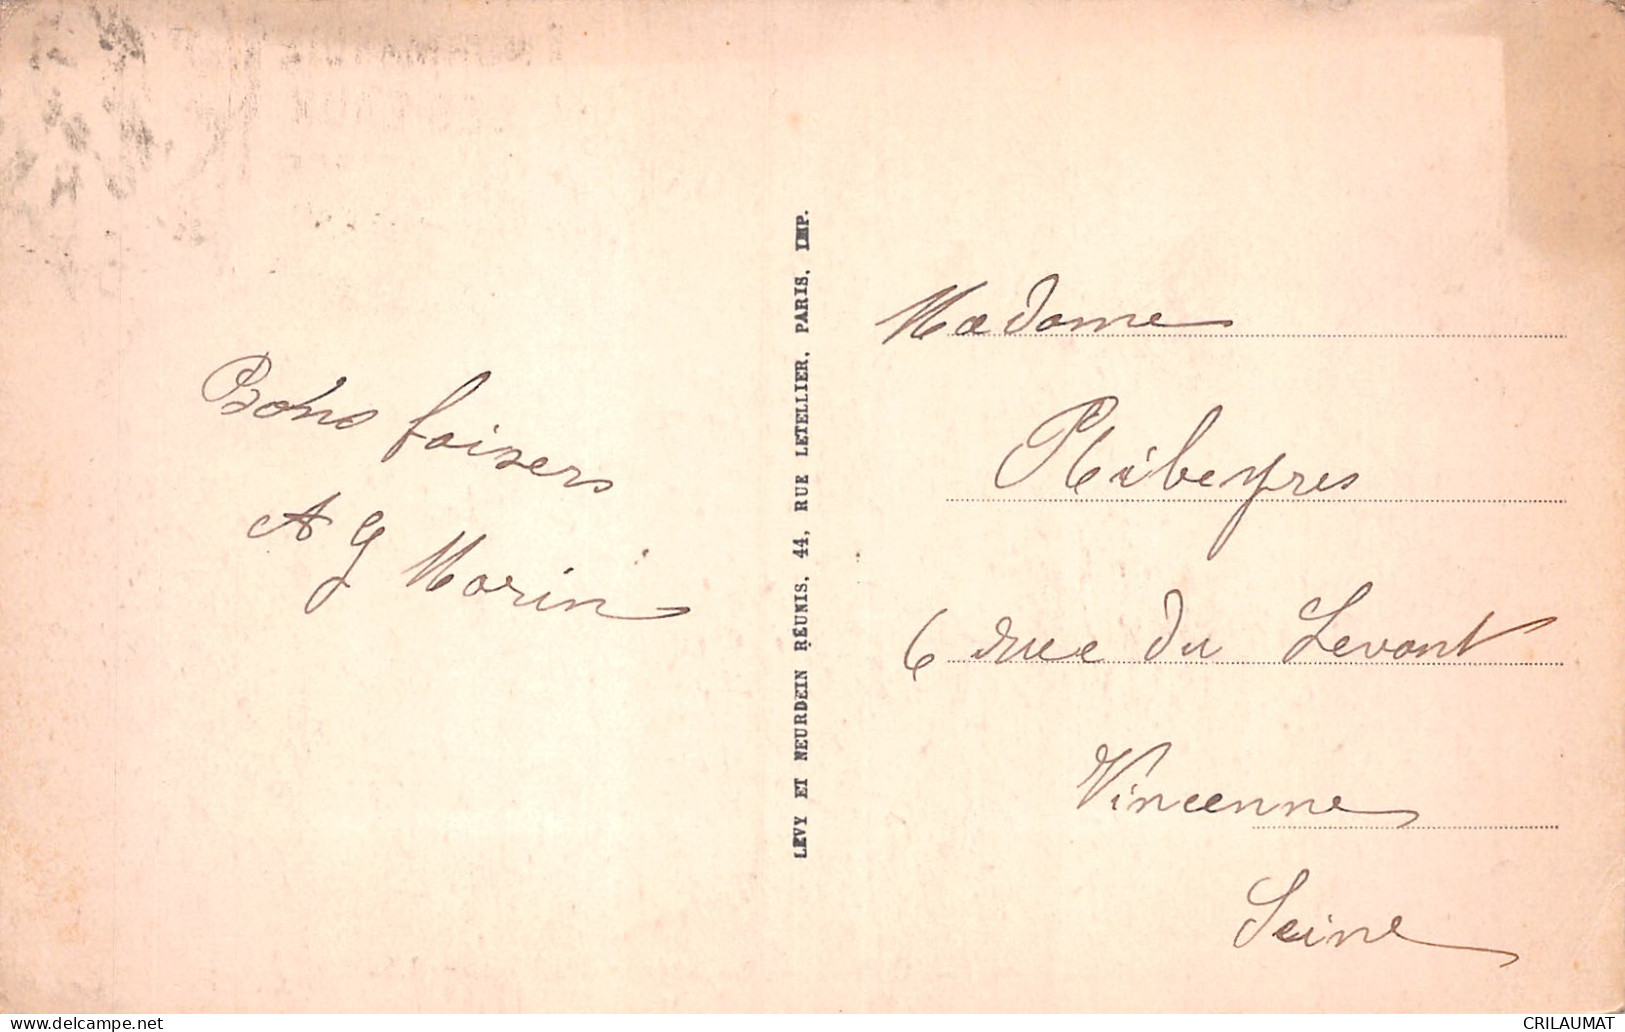 Bons baisers
A G Morin
LEVY ET NEURDEIN RÉUNIS, 44, RUE LETELLIER, PARIS, IMP.
Madame
Ribeyres
6 rue du Levant
Vincenne
Seine
www.delcampe.net
CRILAUMAT